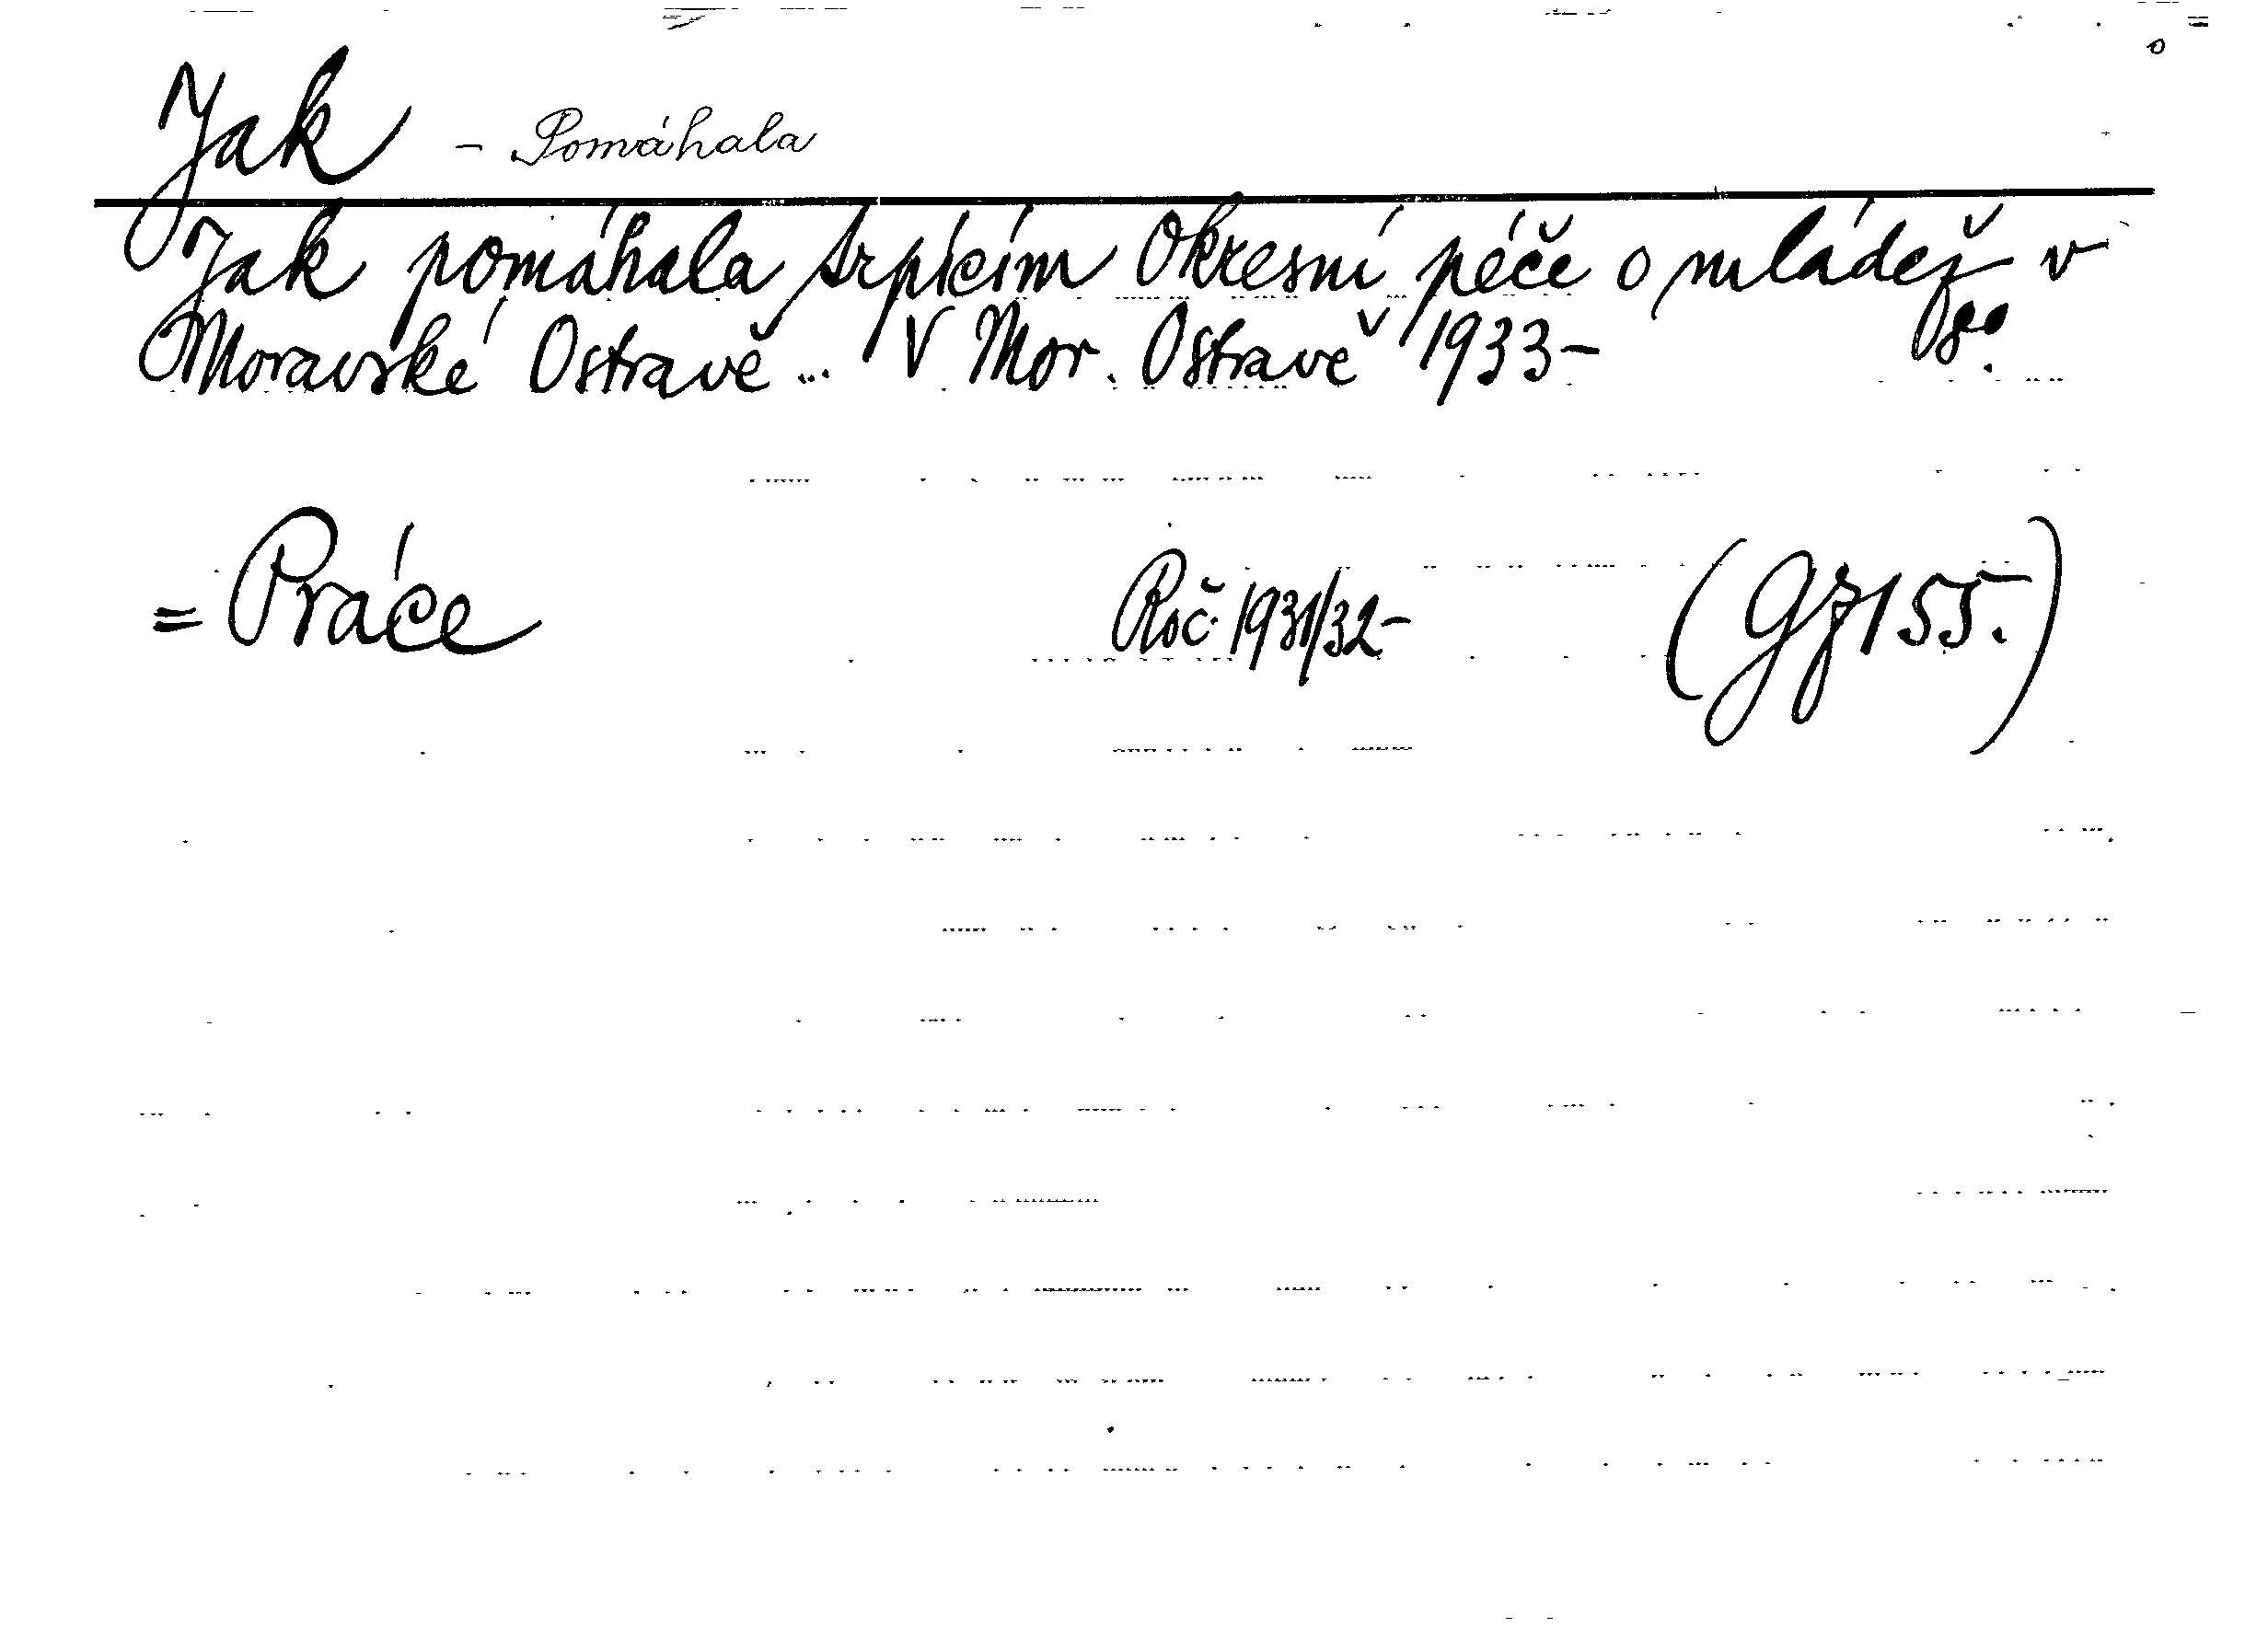 Jak - Pomáhala
Jak pomáhala trpícím Okresní péče o mládež v
Moravské Ostravě... V Mor. Ostravě 1933- 8°.
= Práce Roč. 1931/32- (Gf 155.)